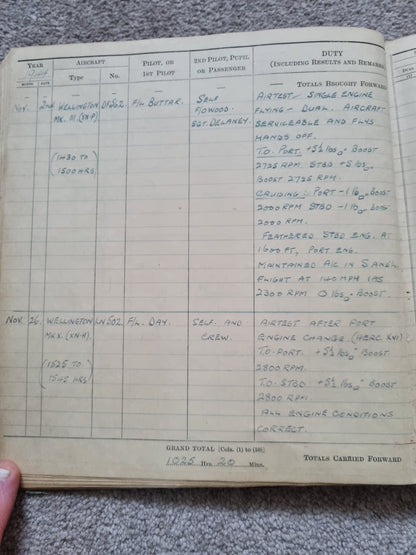 YEAR
1944
MONTH DATE
AIRCRAFT
Type No.
PILOT, OR
1ST PILOT
2ND PILOT, PUPIL
OR PASSENGER
DUTY
(INCLUDING RESULTS AND REMARKS
— — — — — — TOTALS BROUGHT FORWARD
NOV. 2nd WELLINGTON DF502. F/L BUTTAR. SELF AIRTEST – SINGLE ENGINE
MK. III. FLOWOOD FLYING – DUAL. AIRCRAFT
SGT. DELANEY. SERVICEABLE AND FLYS
HANDS OFF.
(1430 TO T.O. PORT. +5¾ lbs□" BOOST
1500 HRS) 2725 RPM STBD +5 lbs□
BOOST 2725 RPM.
CRUISING: PORT -1 lb□" BOOST
2000 RPM STBD -1 lb□" BOOST
2000 RPM.
FEATHERED STBD ENG. AT
1600 FT, PORT ENG.
MAINTAINED A/C IN S AND L
FLIGHT AT 140 MPH IAS
2300 RPM 0 lbs□" BOOST.
NOV. 26. WELLINGTON LN502. F/L. DAY. SELF AND AIRTEST AFTER PORT
MK X. (XN-H) CREW. ENGINE CHANGE (HERC XVI)
(1525 TO T.O. PORT. +5¾ lbs□" BOOST
1545 HRS) 2800 RPM.
T.O. STBD +5¾ lbs□" BOOST
2800 RPM.
ALL ENGINE CONDITIONS
CORRECT.
GRAND TOTAL [Cols. (1) to (10)]
1025 Hrs. 20 Mins.
TOTALS CARRIED FORWARD